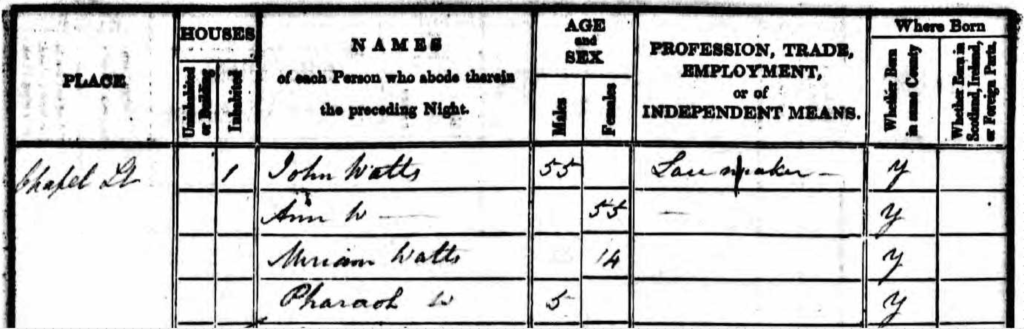 PLACE
HOUSES
Uninhabited or Building
Inhabited
NAMES
of each Person who abode therein
the preceding Night.
AGE
and
SEX
Males
Females
PROFESSION, TRADE,
EMPLOYMENT,
or of
INDEPENDENT MEANS.
Where Born
Whether Born
in same County
Whether Born in
Scotland, Ireland,
or Foreign Parts.
Chapel St 1 John Watts 55 Lace maker – Y
Ann W — 55 — Y
Miriam Watts 14 Y
Pharaoh W 5 Y